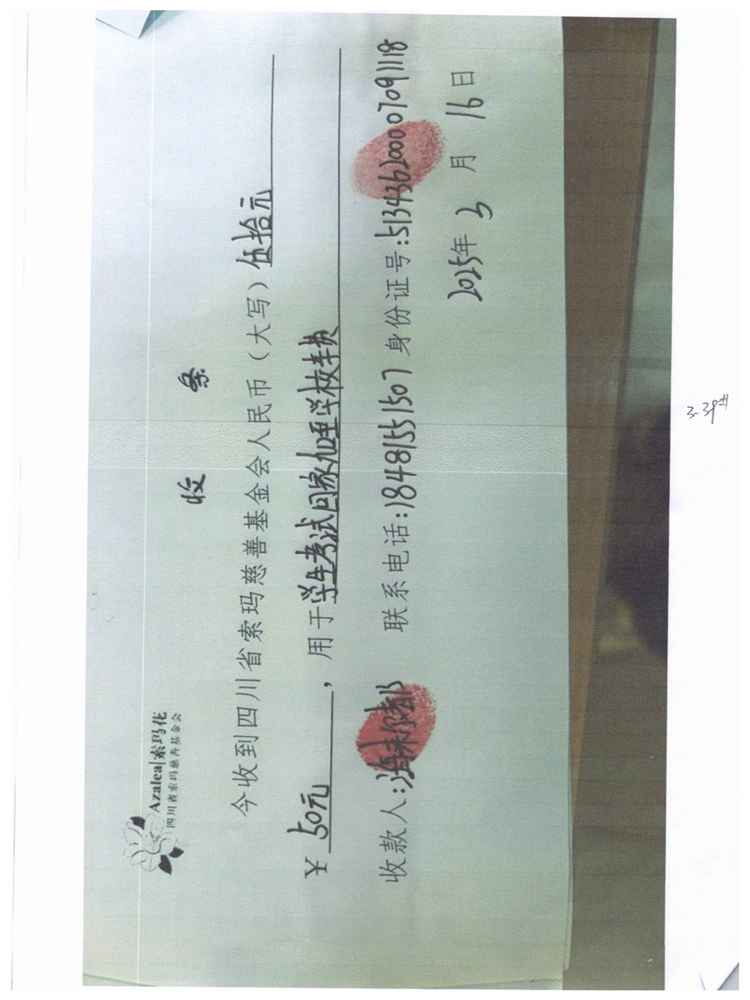 Azalea|索玛花
四川省索玛慈善基金会
收 条
今收到四川省索玛慈善基金会人民币（大写）伍拾元
￥50元，用于学生考试回家加至学校车费
收款人: 联系电话:18481551507 身份证号:513436200007091118
2025年3月16日